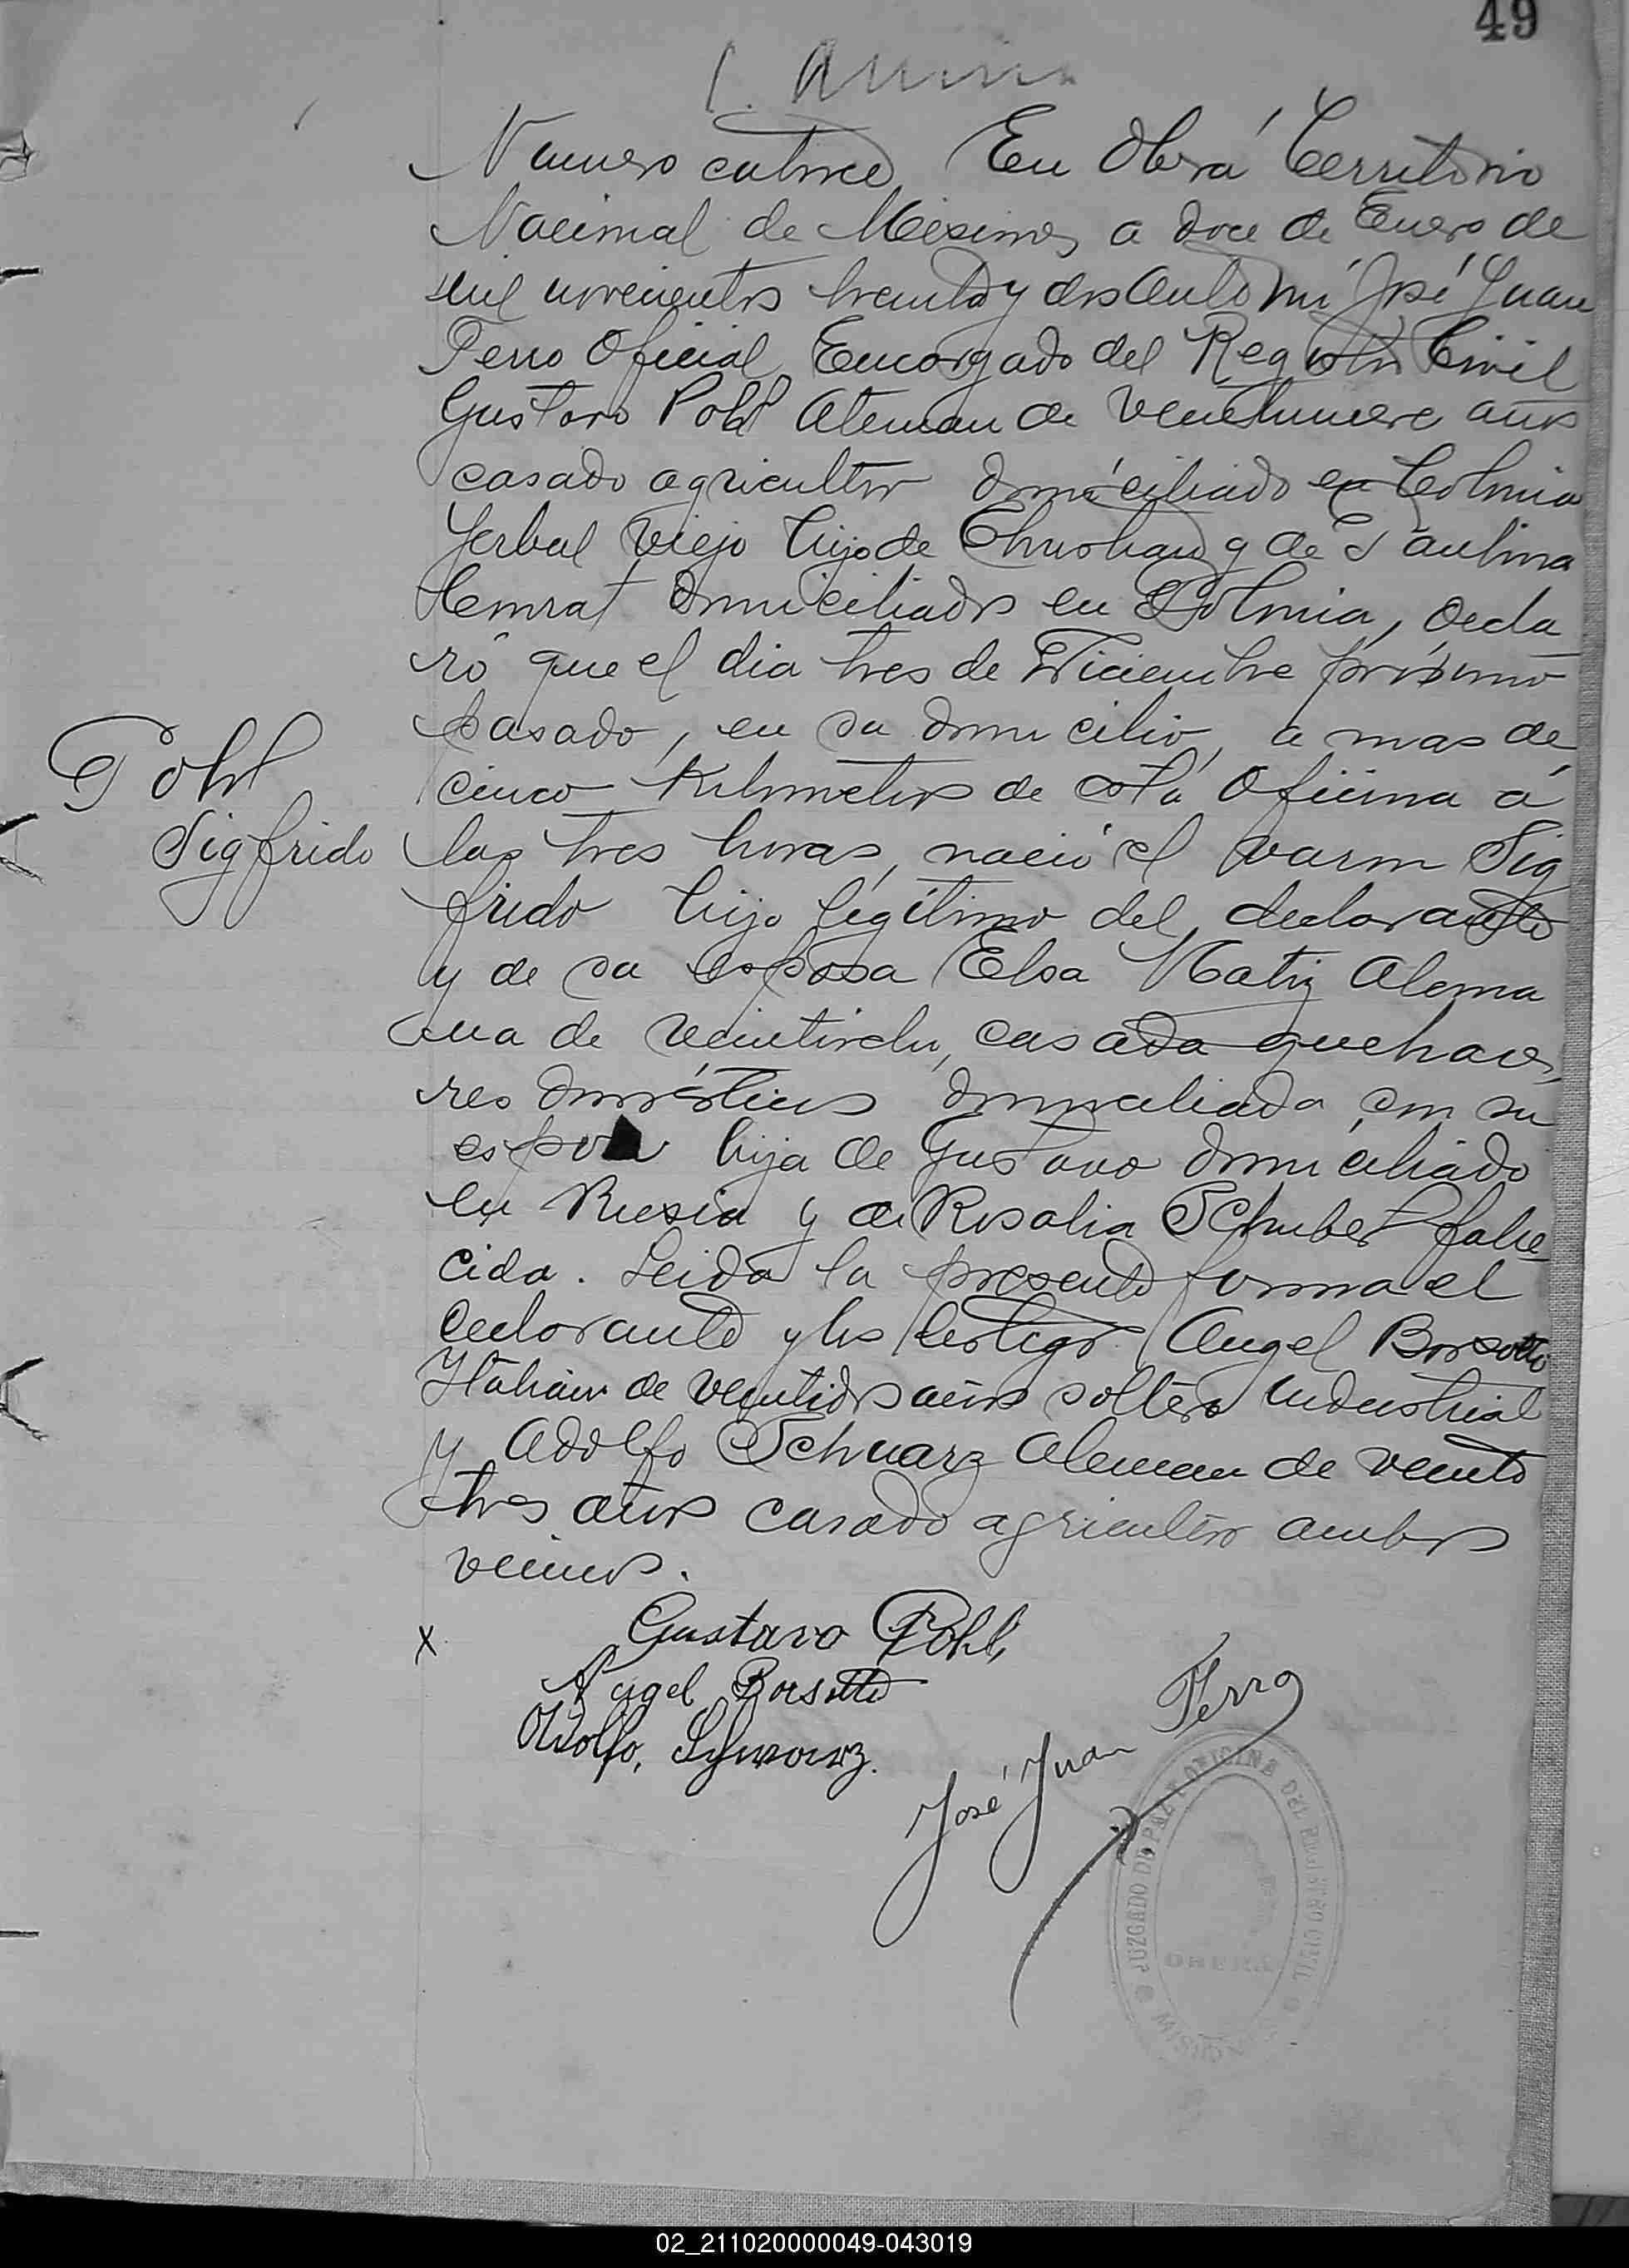 49
Numero catorce En Oberá Territorio
Nacional de Misiones a doce de Enero de
mil novecientos treinta y dos Ante mi José Juan
Ferro Oficial Encargado del Registro Civil
Gustavo Pohl Aleman de veintinueve años
casado agricultor domiciliado en Colonia
Yerbal Viejo hijo de Christian y de Paulina
Conrat domiciliados en Polonia, decla
ró que el dia tres de Diciembre próximo
pasado, en su domicilio, a mas de
Pohl
cinco kilometros de esta Oficina a
Sigfrido
las tres horas, nació el varon Sig
frido hijo legítimo del declarante
y de su esposa Elsa Matiz Alema
na de veintiocho, casada quehace
res domésticos domiciliada con su
esposo hija de Gustavo domiciliado
en Rusia y de Rosalia Schubert falle
cida. Leida la presente forma el
declarante y los testigos Angel Borsotti
Italiano de veintidos años soltero industrial
y Adolfo Schuarz Aleman de veinte
y tres años casado agricultor ambos
vecinos.
x Gustavo Pohl,
Angel Borsotti
Adolfo, Schwarz.
José Juan Ferro
JUZGADO DE PAZ Y OFICINA DEL REGISTRO CIVIL
OBERÁ
MISIONES
02_211020000049-043019